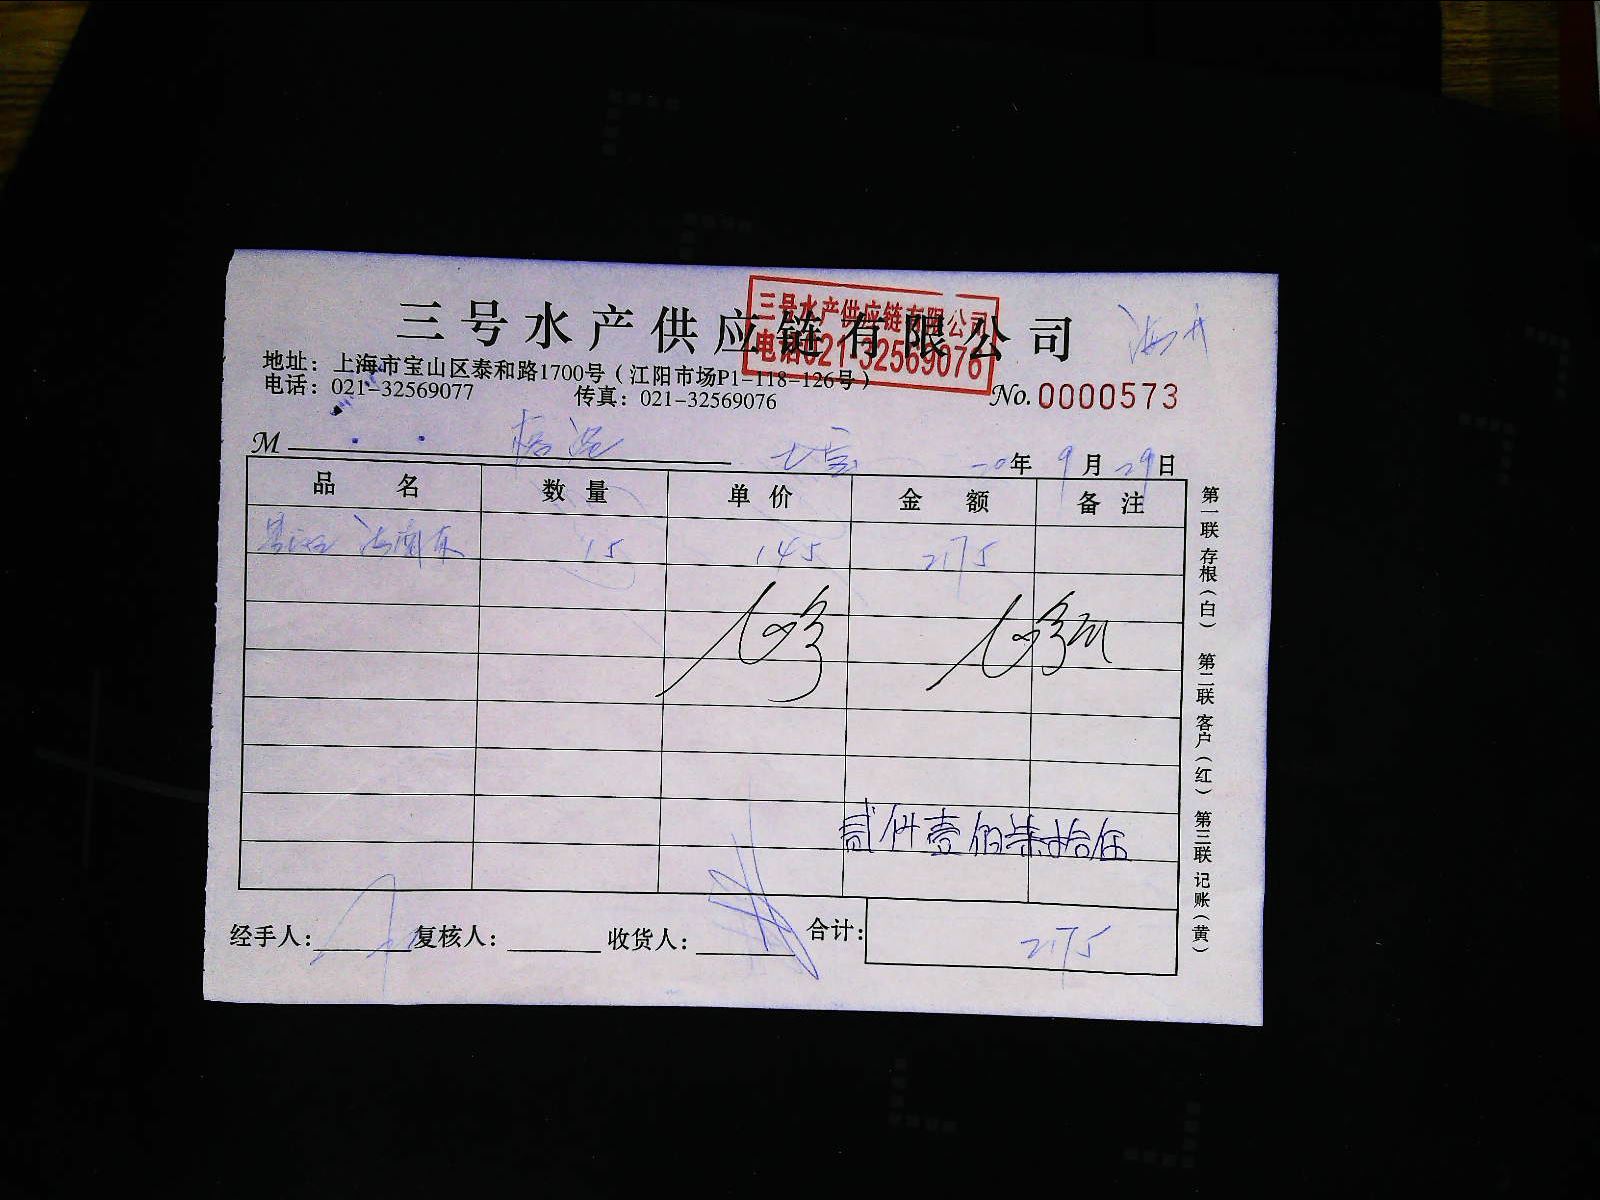 三号水产供应链有限公司
三号水产供应链有限公司
电话021-32569076
地址：上海市宝山区泰和路1700号（江阳市场P1-118-126号）
电话：021-32569077 传真：021-32569076
No.0000573
M 七宝 20年 9月 29日
品名 数量 单价 金额 备注
15 145 2175
贰仟壹佰柒拾伍
经手人： 复核人： 收货人： 合计： 2175
第一联 存根（白） 第二联 客户（红） 第三联 记账（黄）